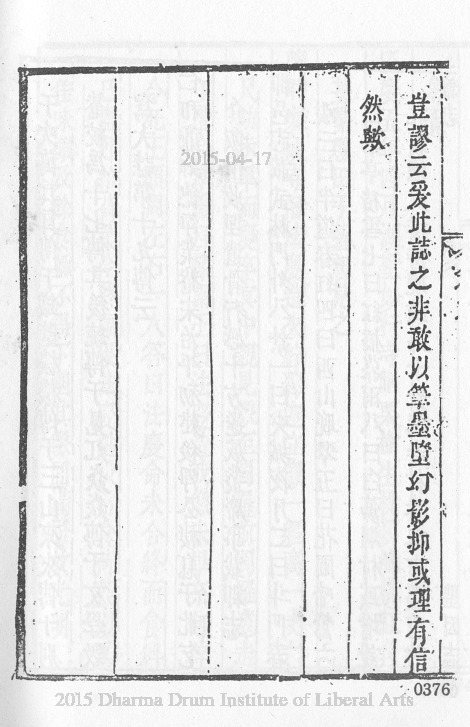 豈謬云爰此誌之非敢以筆墨墮幻影抑或理有信
然歟
2015-04-17
0376
2015 Dharma Drum Institute of Liberal Arts